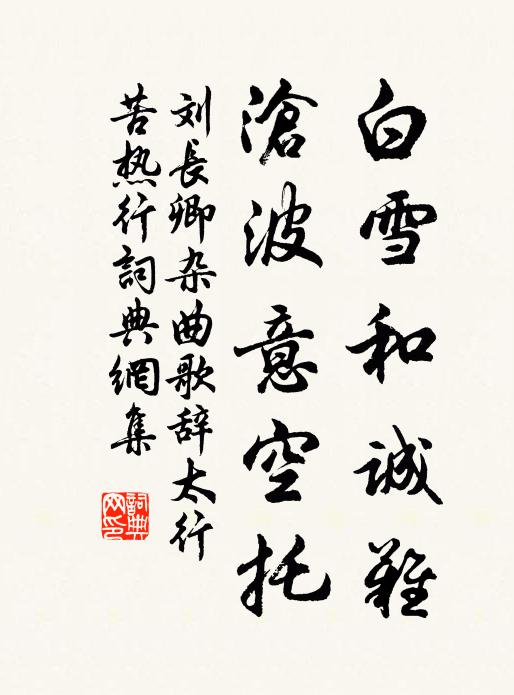 白雪和誠難
滄波意空托
刘長卿杂曲歌辞太行
苦热行詞典網集
詞典网印